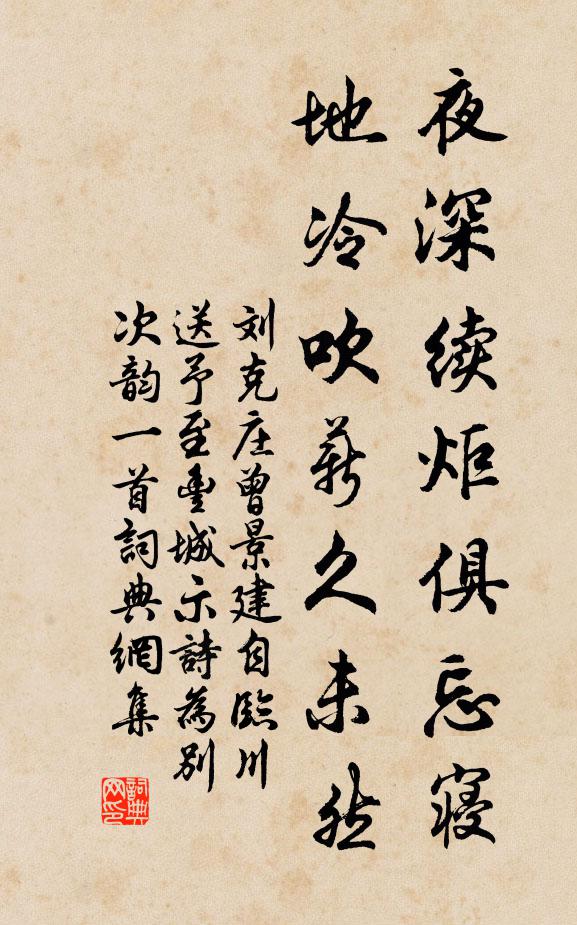 夜深续炬俱忘寝
地冷吹薪久未然
刘克庄曾景建自臨川
送予至豊城示詩為别
次韵一首詞典網集
詞典网印